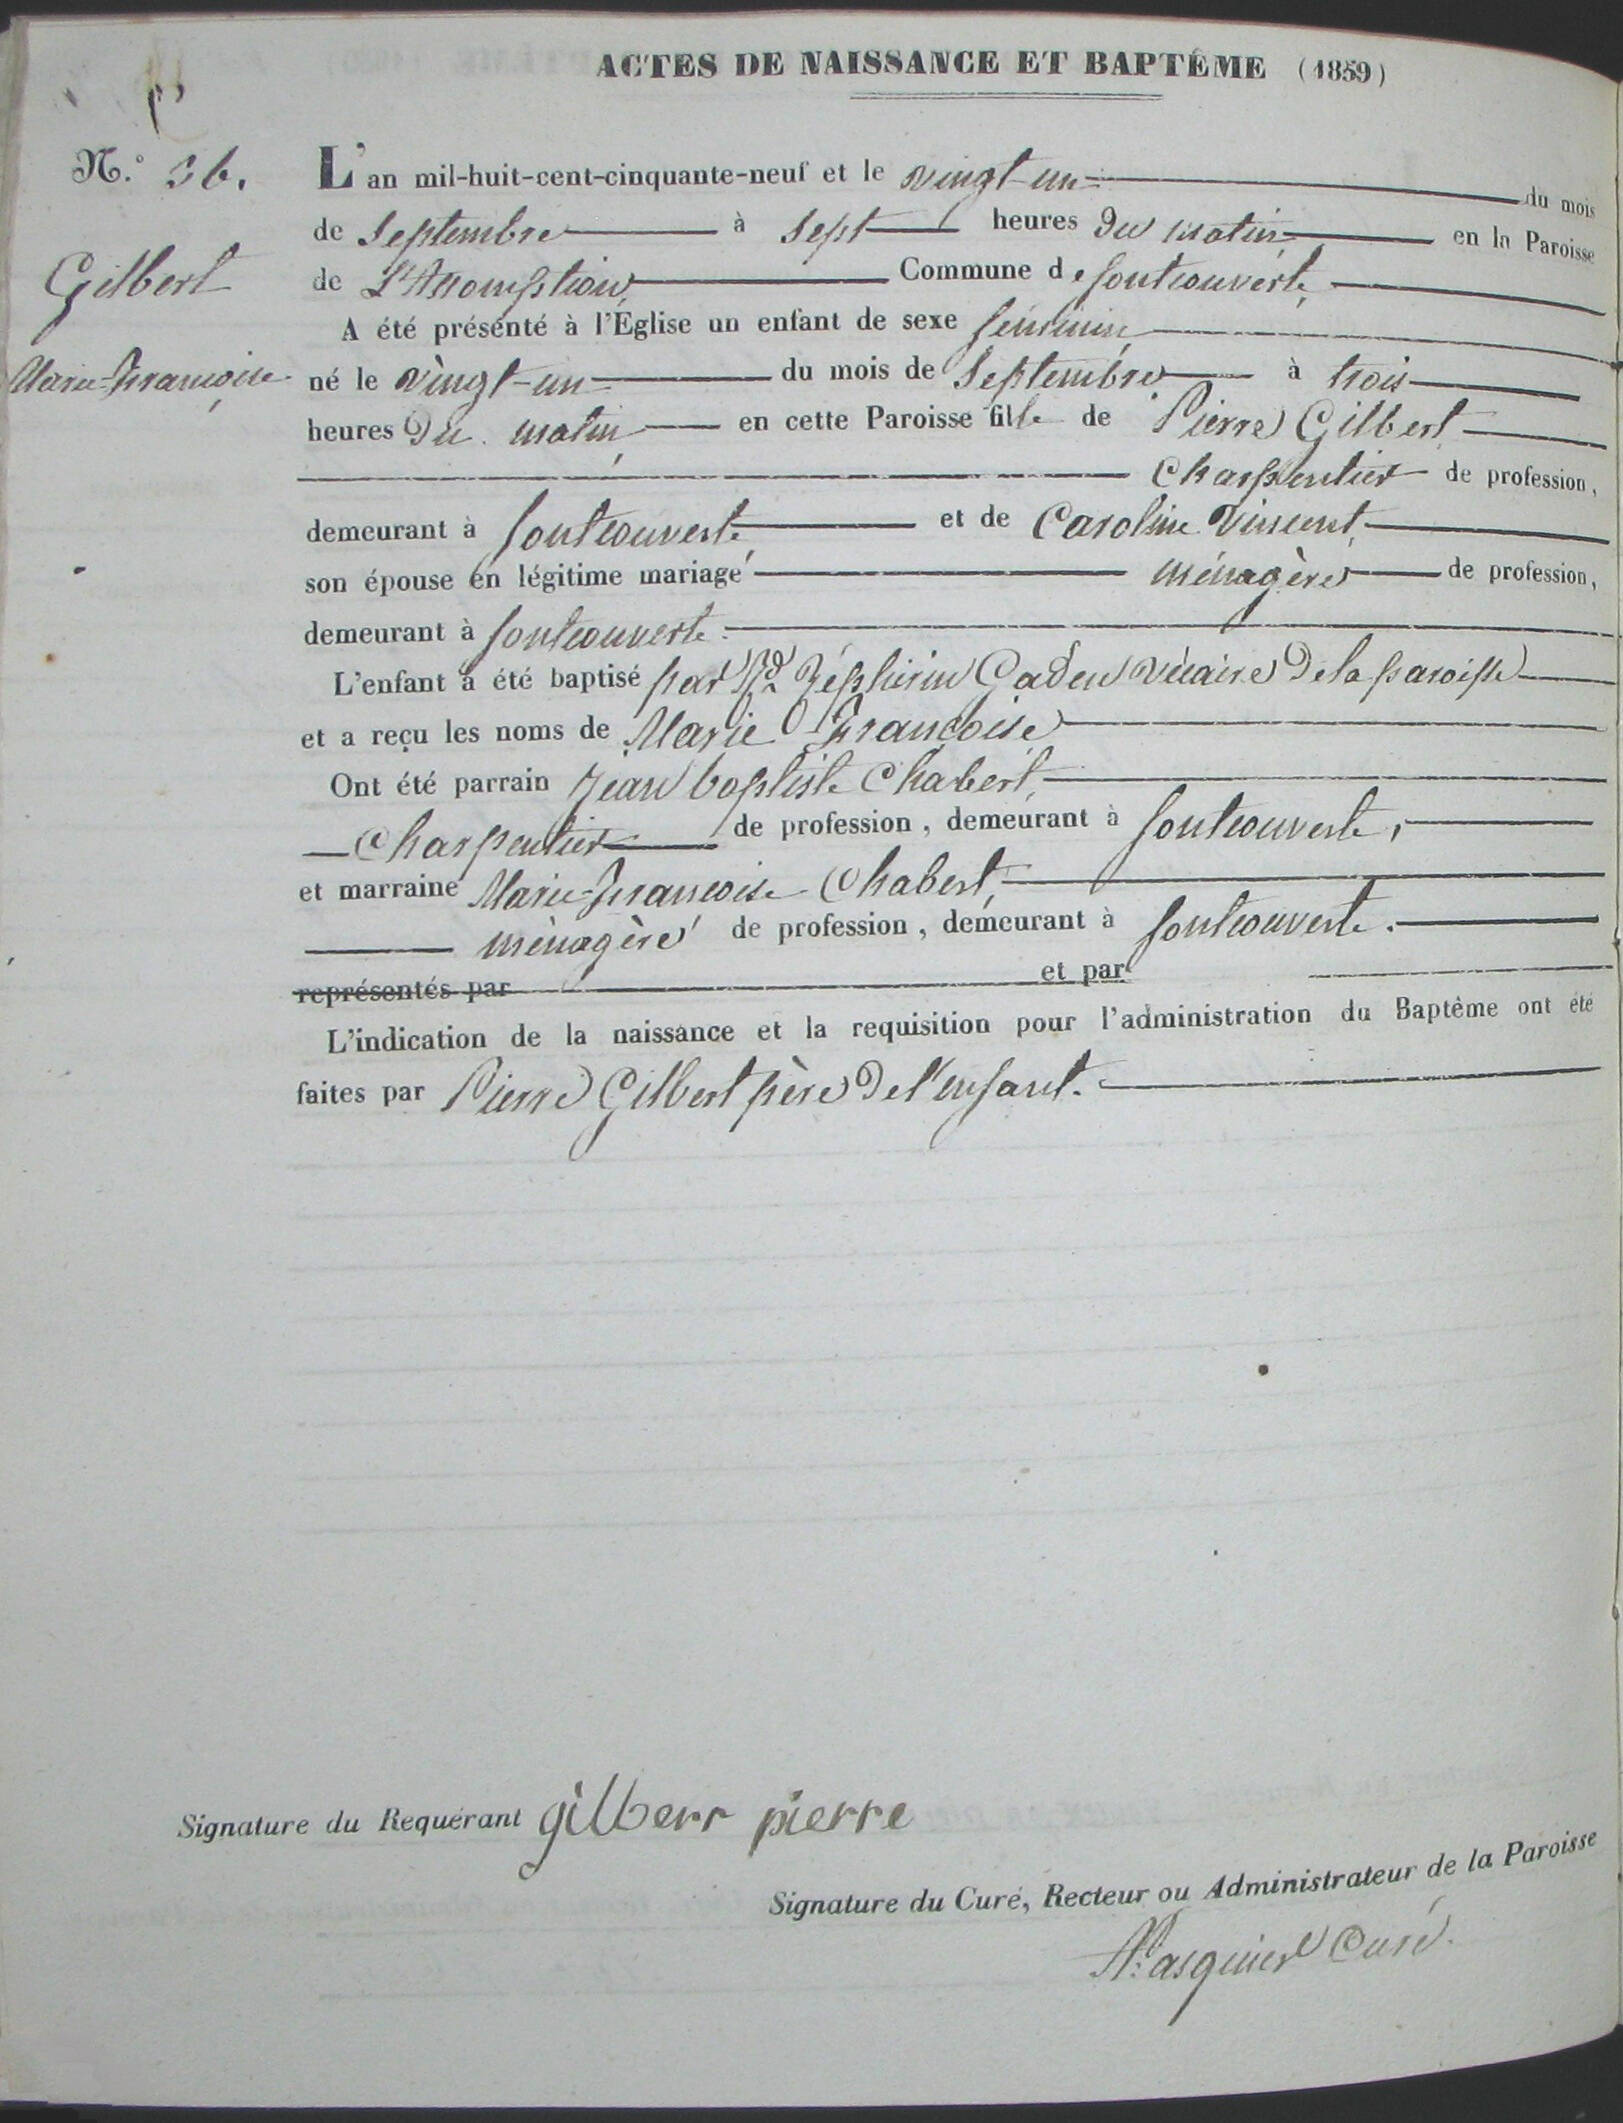 ACTES DE NAISSANCE ET BAPTÊME (1859)
N.º 36.
Gilbert
Marie-Francoise
L'an mil-huit-cent-cinquante-neuf et le vingt-un du mois
de Septembre à sept heures du matin en la Paroisse
de L'Assomption, Commune de fontcouverte,
A été présenté à l'Église un enfant de sexe féminin,
né le vingt-un du mois de Septembre à trois
heures du matin, en cette Paroisse fille de Pierre Gilbert,
Charpentier de profession,
demeurant à fontcouverte, et de Caroline Vincent,
son épouse en légitime mariage ménagère de profession,
demeurant à fontcouverte.
L'enfant a été baptisé par Rd Zéphirin Gaden vicaire de la paroisse
et a reçu les noms de Marie Francoise
Ont été parrain Jean baptiste Chabert,
Charpentier de profession, demeurant à fontcouverte,
et marraine Marie-Francoise Chabert,
ménagère de profession, demeurant à fontcouverte.
représentés par et par
L'indication de la naissance et la requisition pour l'administration du Baptême ont été
faites par Pierre Gilbert père de l'enfant.
Signature du Requérant gilbert pierre
Signature du Curé, Recteur ou Administrateur de la Paroisse
Pasquier Curé.